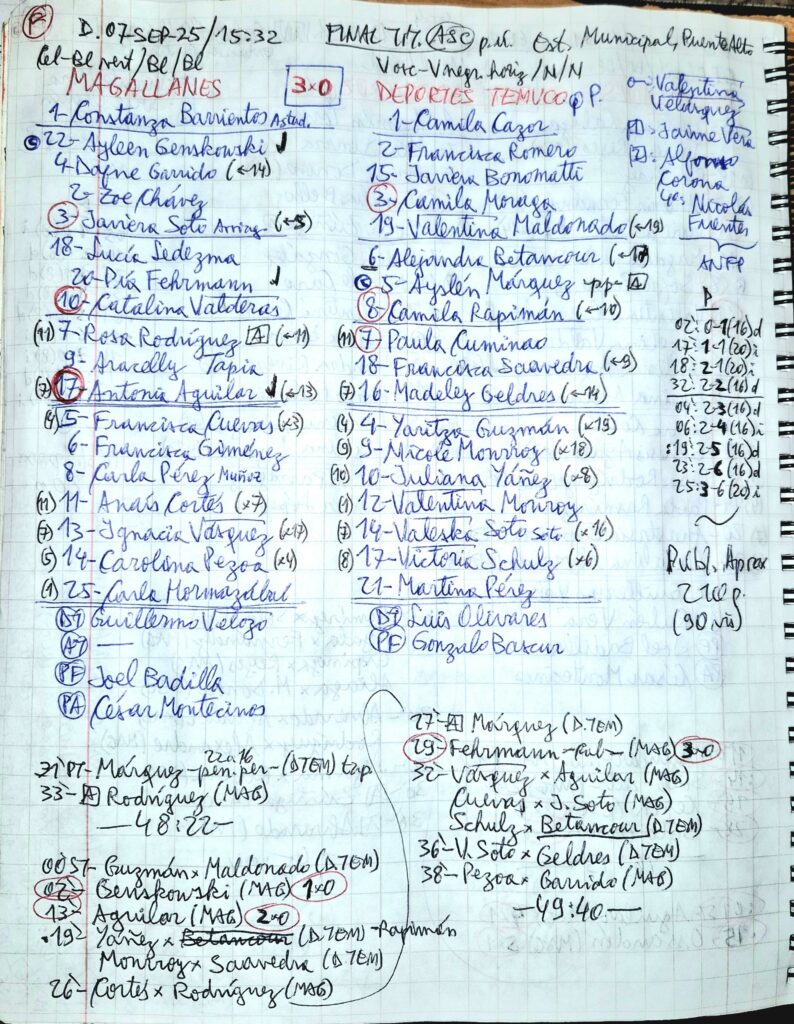 P D. 07-SEP-25/15:32 FINAL TIT. ASC p.n. Est. Municipal, Puente Alto
Cel-Bl vert/Bl/Bl
Vosc-Vnegr. horiz/N/N
MAGALLANES 3x0 DEPORTES TEMUCO
1- Constanza Barrientos Astud.
C 22- Ayleen Genskowski
4- Dayne Garrido (←14)
2- Zoe Chávez
3- Javiera Soto (←5)
18- Lucía Ledezma
20- Pía Fehrmann
10- Catalina Valderas
(11) 7- Rosa Rodríguez A (←11)
9- Aracelly Tapia
(7) 17- Antonia Aguilar (←13)
(4) 5- Francisca Cuevas (x3)
6- Francisca Giménez
8- Carla Pérez Muñoz
(11) 11- Anaís Cortés (x7)
(7) 13- Ignacia Vásquez (x17)
(5) 14- Carolona Pezoa (x4)
(1) 25- Carla Hormazábal
DT Guillermo Velozo
AT —
PF Joel Badilla
PA César Montecinos
1- Camila Cazor
2- Francisca Romero
15- Javiera Bonomatti
3- Camila Moraga
19- Valentina Maldonado (←19)
6- Alejandra Betancour
C 5- Ayslén Márquez -pp- A
8- Camila Rapimán (←10)
(11) 7- Paula Cuminao
18- Francisca Saavedra (←9)
(7) 16- Madeley Geldres (←14)
(4) 4- Yaritza Guzmán (x19)
(9) 9- Nicole Monroy (x18)
(10) 10- Juliana Yáñez (x8)
(1) 12- Valentina Monroy
(7) 14- Valeska Soto Soto (x16)
(8) 17- Victoria Schulz (x6)
21- Martina Pérez
DT Luis Olivares
PF Gonzalo Bascur
0- Valentina
Velásquez
1: Jaime Vera
2: Alfonso
Corona
4º: Nicolás
Fuentes
ANFP
P
02: 0-1 (16) d
17: 1-1 (20) i
18: 2-1 (20) i
32: 2-2 (16) d
04: 2-3 (16) d
06: 2-4 (16) i
19: 2-5 (16) d
23: 2-6 (16) d
25: 3-6 (20) i
Publ. Aprox
210 p.
(90 vis)
31 PT- Márquez -pen. per- (DTEM) tap
22 a 16
33- A Rodríguez (MAG)
—48:22—
00 ST- Guzmán x Maldonado (D.TEM)
02- Genskowski (MAG) 1x0
13- Aguilar (MAG) 2x0
19- Yáñez x Betancour (D.TEM) -Rapimán
Monroy x Saavedra (D.TEM)
26- Cortés x Rodríguez (MAG)
27- A Márquez (D.TEM)
29- Fehrmann (MAG) 3x0
32- Vásquez x Aguilar (MAG)
Cuevas x J. Soto (MAG)
Schulz x Betancour (D.TEM)
36- V. Soto x Geldres (D.TEM)
38- Pezoa x Garrido (MAG)
—49:40—